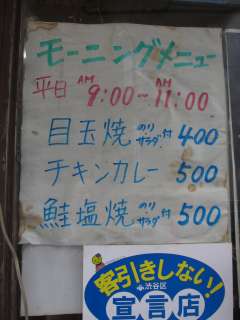 モーニングメニュー
平日 AM 9:00〜AM 11:00
目玉焼 のり サラダ 付 400
チキンカレー 500
鮭塩焼 のり サラダ 付 500
客引きしない!
渋谷区
宣言店